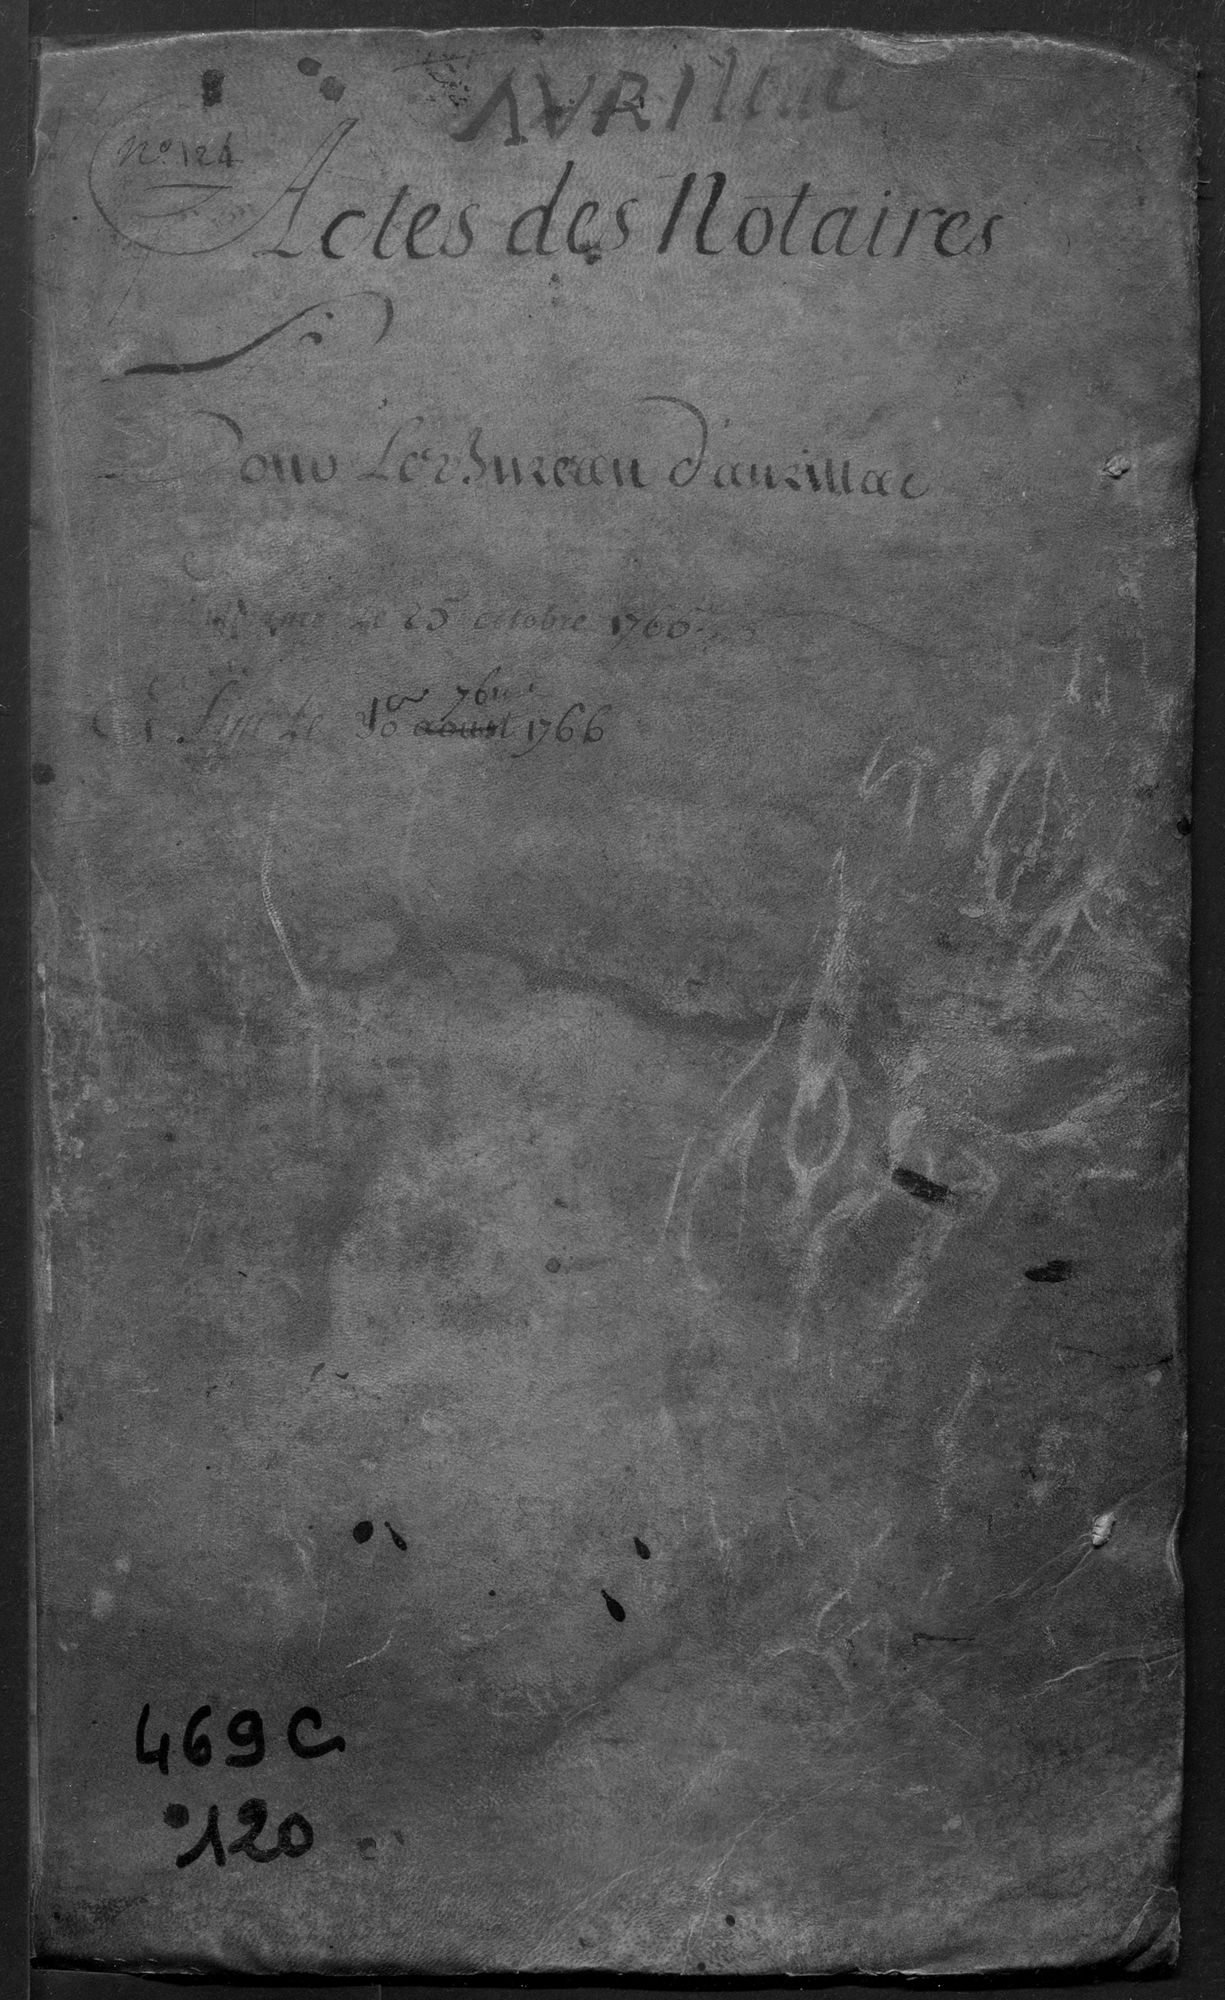 AVRIllac
N.º 124
Actes des Notaires
Pour Le Bureau d'aurillac
le 25 octobre 1760
Et fini le 1er 7bre 1766
469 C
120